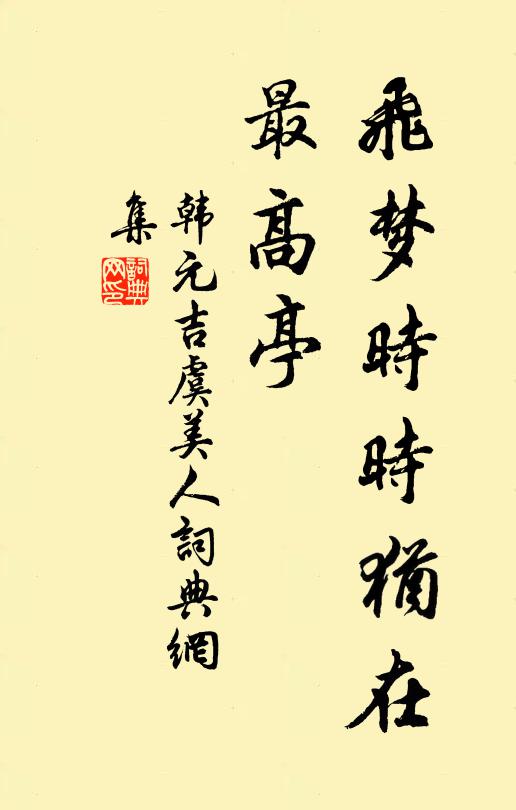 飛梦時時猶在
最高亭
韩元吉虞美人詞典網
集
詞典網印